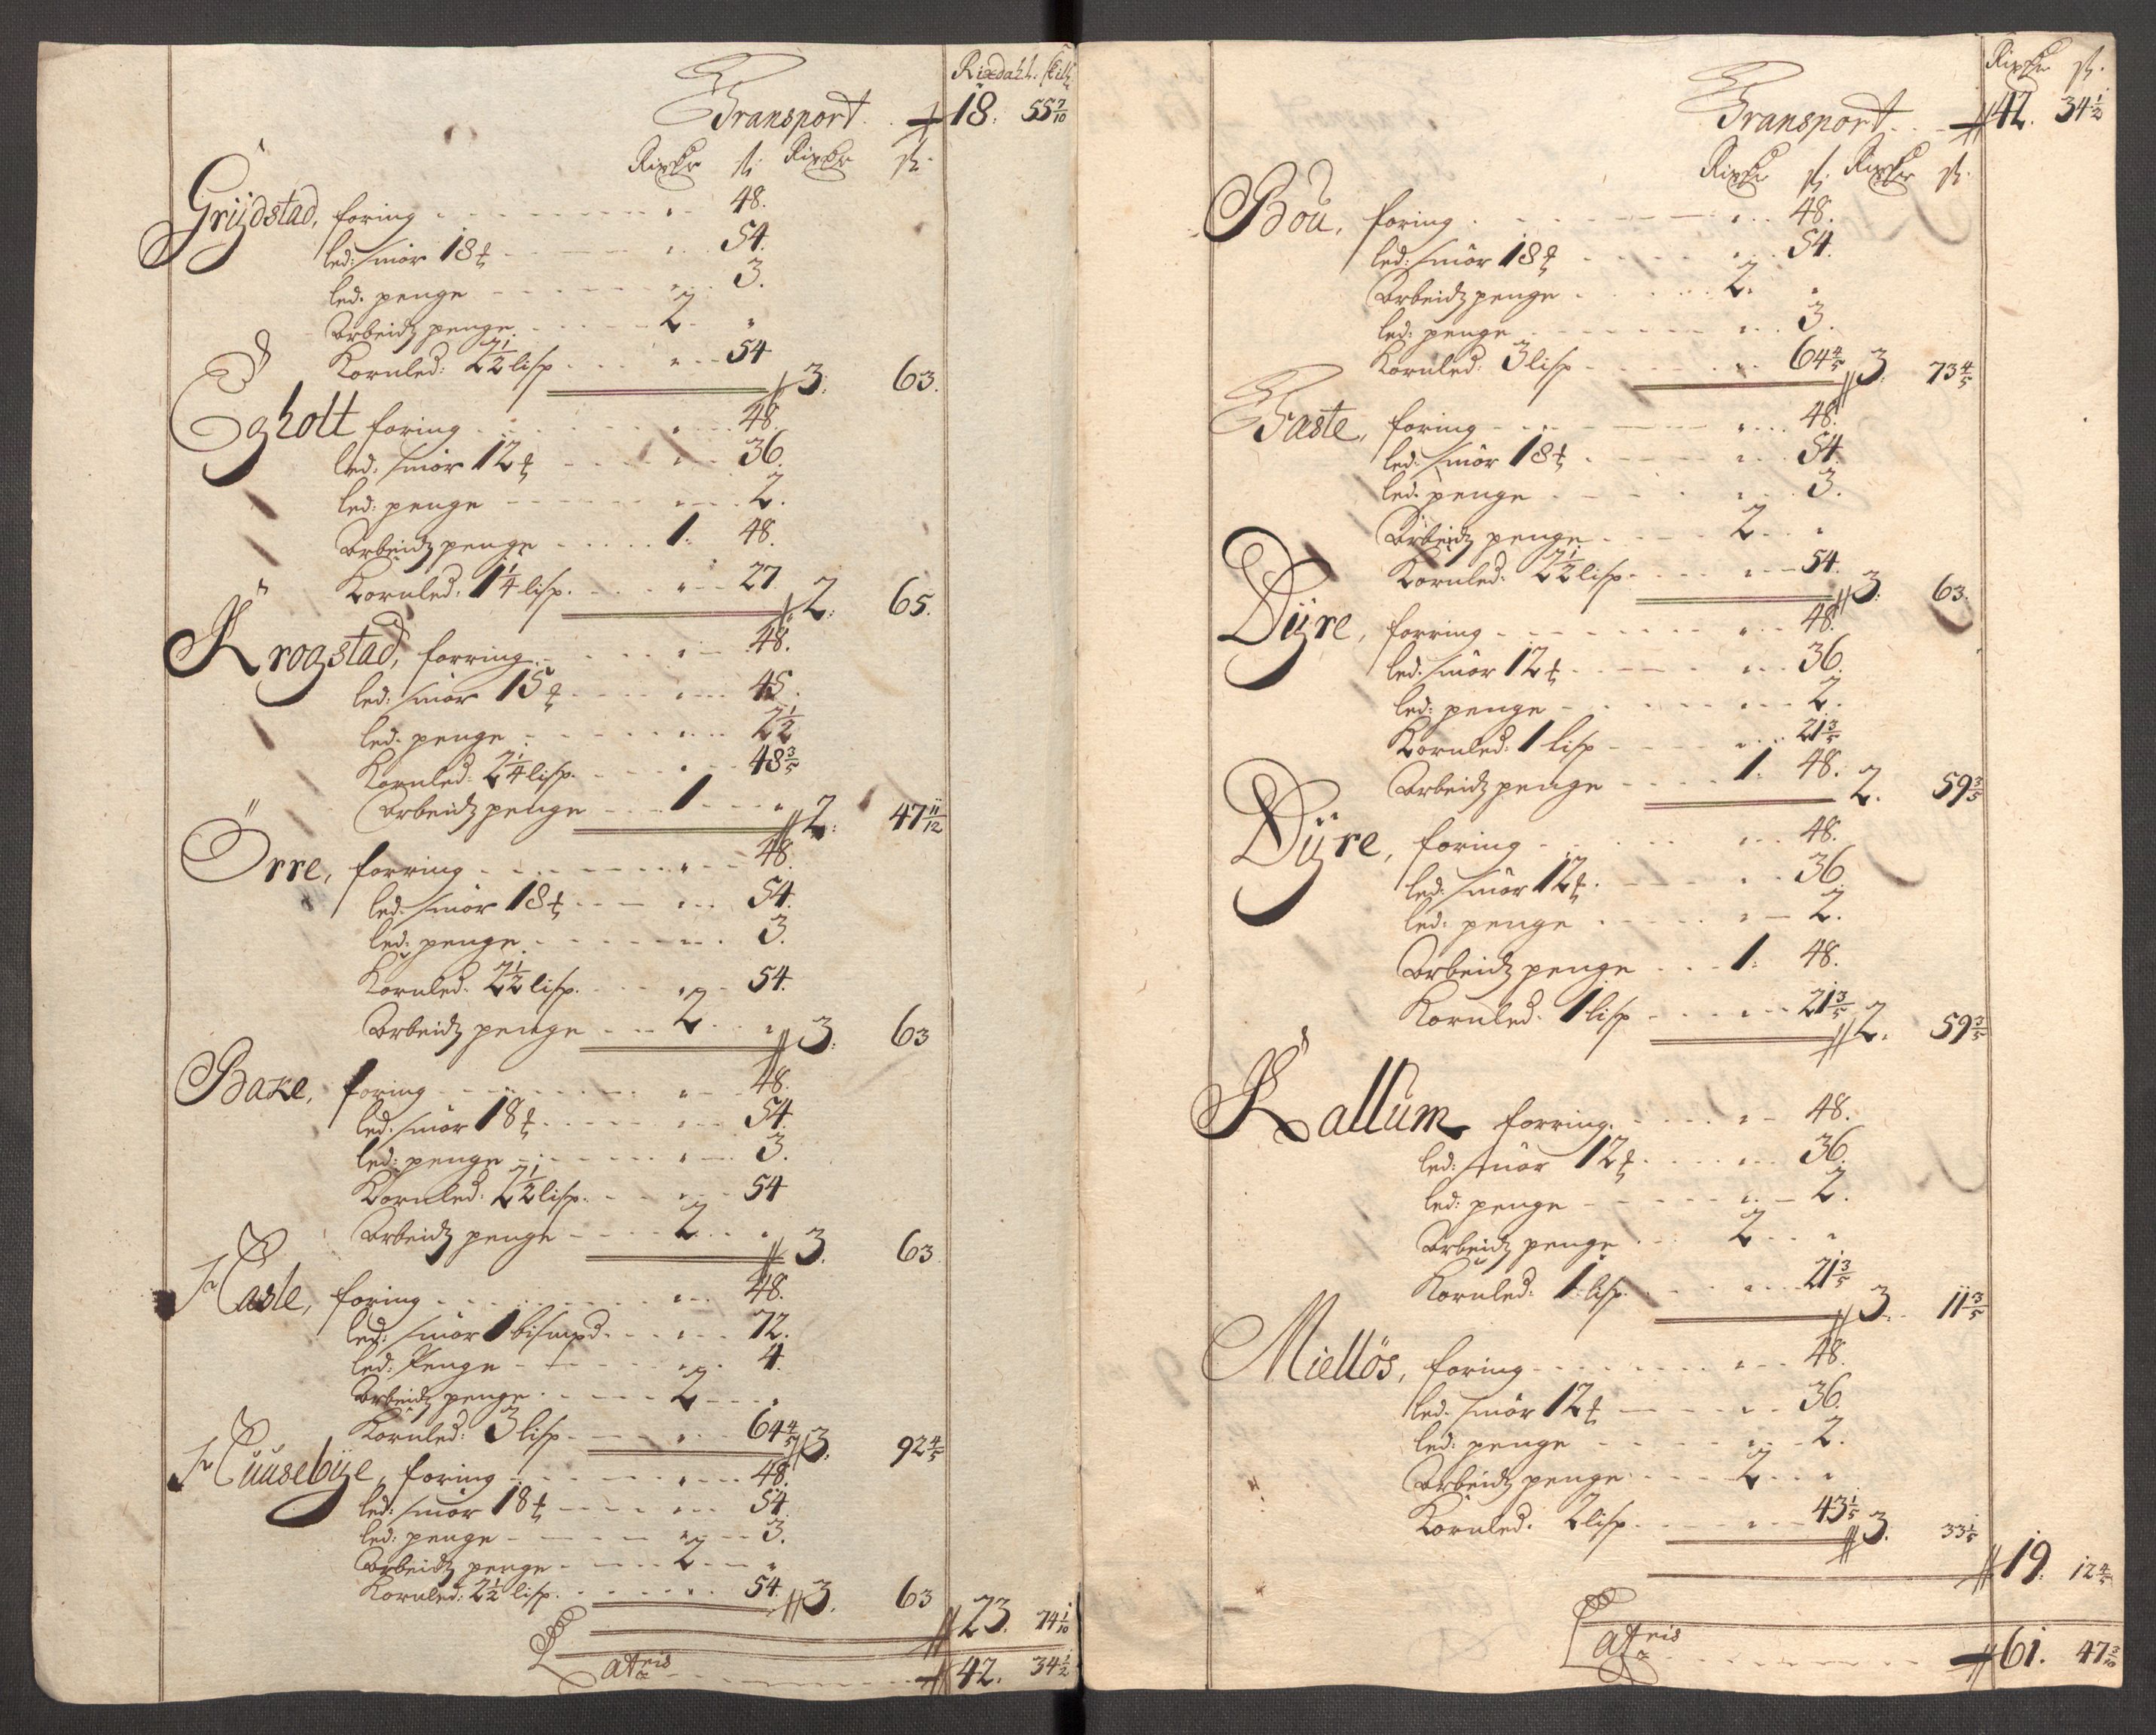 Rixdahl. skill
Transport. 18. 55 7/10
Rixdr ſk: Rixdr ſk.
Grijdstad, foring 48.
led: smör 18 ℔ 54.
led: penge 3.
Arbeidz penge 2
Kornled: 2 1/2 lisp 54 3. 63.
Egholt foring 48
led: smör 12 ℔ 36.
led: penge 2.
Arbeidz penge 1. 48.
Kornled. 1 1/4 lisp. 27 2. 65.
Krogstad, forring 48.
led: smör 15 ℔ 45.
led: penge 2 1/2
Kornled: 2 1/4 lisp. 48 3/5
Arbeidz penge 1 2. 47 11/12
Örre, forring 48.
led: smör 18 ℔ 54.
led: penge 3.
Kornled. 2 1/2 lisp. 54.
Arbeidz penge 2 3. 63
Bake, foring 48.
led: smör 18 ℔ 54.
led: penge 3.
Kornled: 2 1/2 lisp. 54
Arbeidz penge 2 3. 63
Hasle, foring 48.
led: smör 1 bismpd. 72.
led: Penge 4.
Arbeidz penge 2
Kornled: 3 lisp. 64 4/5 3. 92 4/5
Huusebÿe, foring 48.
led: smör 18 ℔ 54
led: penge 3.
Arbeidz penge 2
Kornled: 2 1/2 lisp. 54. 3. 63
23. 74 1/10
Lateris 42. 34 1/2
Rixdr ſk.
Transport 42. 34 1/2
Rixdr ſk: Rixdr ſk.
Bou, foring 48.
led: smör 18 ℔ 54.
Arbeidz penge 2.
led: penge 3.
Kornled: 3 lisp 64 4/5 3. 73 4/5
Faste, foring 48.
led: smör 18 ℔ 54.
led: penge 3.
Arbeidz penge 2
Kornled: 2 1/2 lisp. 54. 3. 63.
Dÿre, forring 48.
led: smör 12 ℔ 36.
led: penge 2.
Kornled: 1 lisp 21 3/5
Arbeidz penge 1. 48. 2. 59 3/5
Dÿre, foring 48.
led: smör 12 ℔ 36
led: penge 2.
Arbeidz penge 1. 48.
Kornled. 1 lisp 21 3/5 2. 59 3/5
Kallum forring. 48.
led: smör 12 ℔ 36.
led: penge 2.
Arbeidz penge 2
Kornled: 1 lisp. 21 3/5 3. 11 3/5
Miellös, foring 48.
led: smör 12 ℔ 36.
led: penge 2.
Arbeidz penge 2
Kornled. 2 lisp. 43 1/5 3. 33 1/5
19. 12 4/5
Lateris 61. 47 3/10